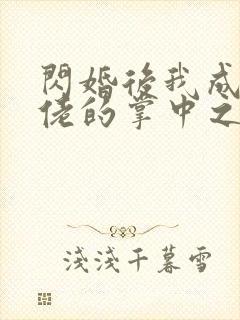 閃婚後我成
佬的掌中之
淺淺千暮雪